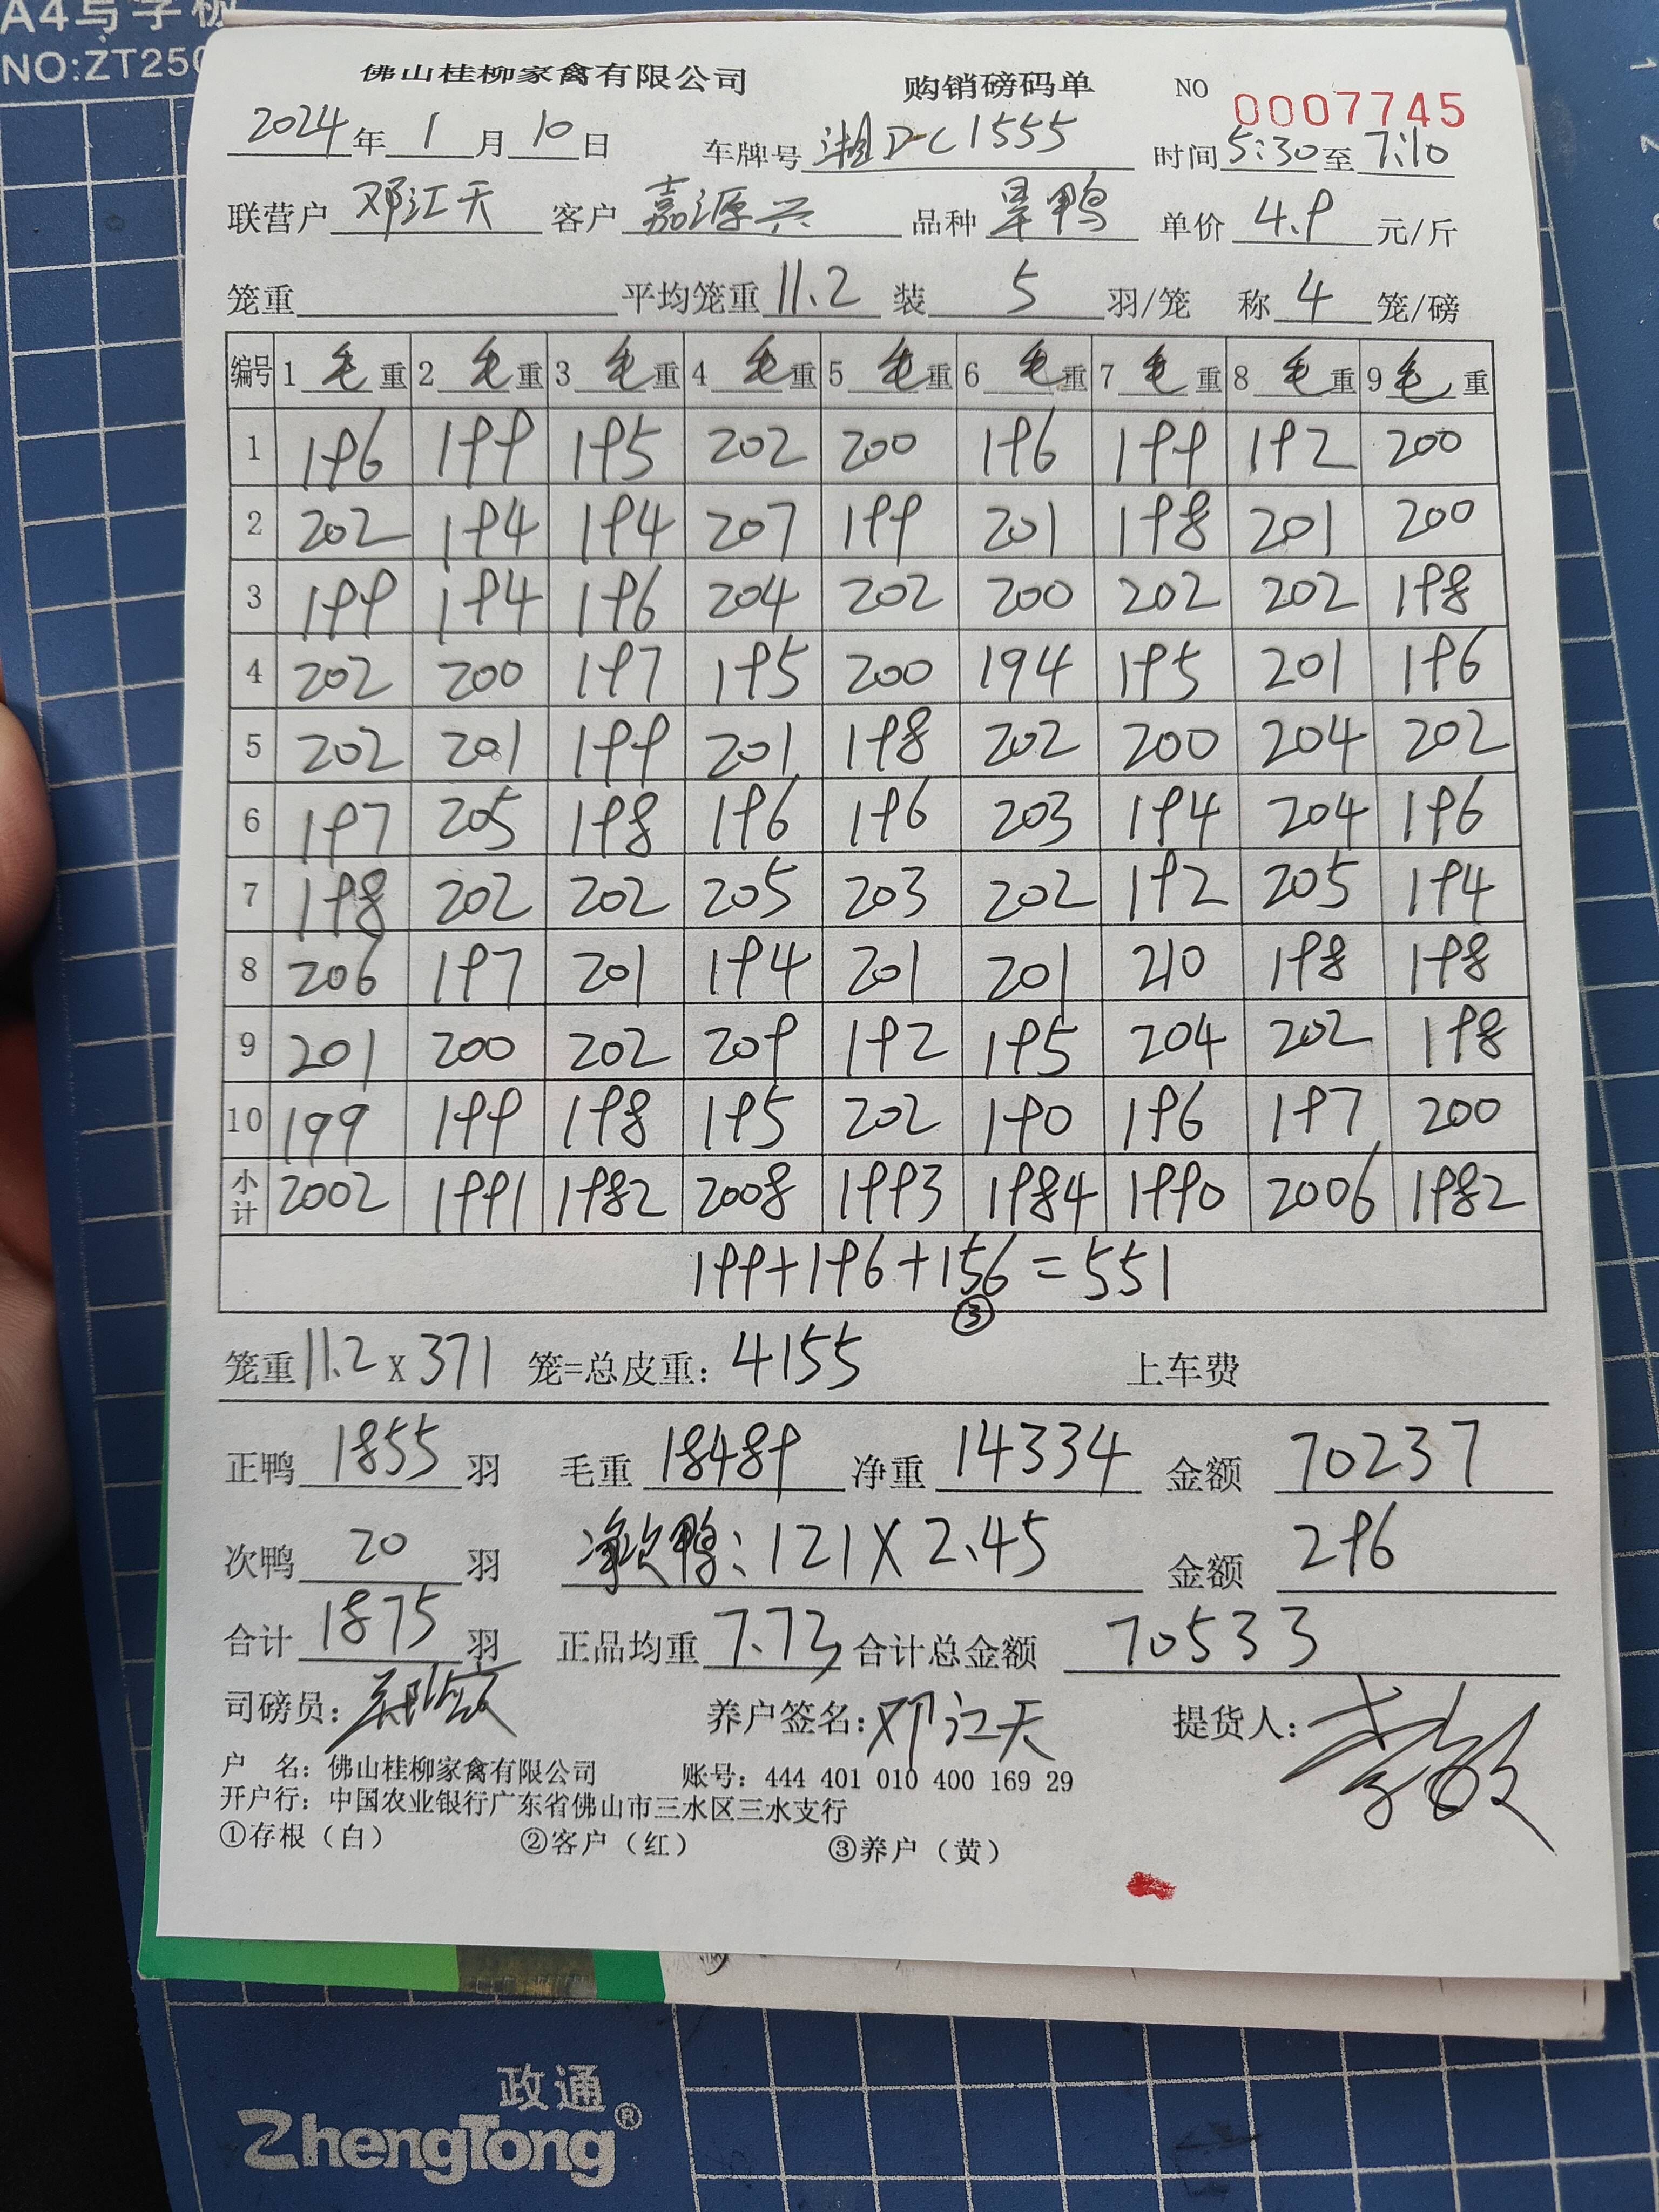 A4写字板
NO:ZT250
佛山桂柳家禽有限公司 购销磅码单 NO 0007745
2024年1月10日 车牌号 湘DC1555 时间5:30至7:10
联营户 邓江天 客户 嘉源兴 品种 旱鸭 单价 4.9 元/斤
笼重 平均笼重 11.2 装 5 羽/笼 称 4 笼/磅
编号 1 毛重 2 毛重 3 毛重 4 毛重 5 毛重 6 毛重 7 毛重 8 毛重 9 毛重
1 196 199 195 202 200 196 199 192 200
2 202 194 194 207 199 201 198 201 200
3 199 194 196 204 202 200 202 202 198
4 202 200 197 195 200 194 195 201 196
5 202 201 199 201 198 202 200 204 202
6 197 205 198 196 196 203 194 204 196
7 198 202 202 205 203 202 192 205 194
8 206 197 201 194 201 201 210 198 198
9 201 200 202 209 192 195 204 202 198
10 199 199 198 195 202 190 196 197 200
小计 2002 1991 1982 2008 1993 1984 1990 2006 1982
199+196+156=551
③
笼重11.2 x 371 笼=总皮重: 4155 上车费
正鸭 1855 羽 毛重 18489 净重 14334 金额 70237
次鸭 20 羽 净次鸭: 121 X 2.45 金额 296
合计 1875 羽 正品均重 7.73 合计总金额 70533
司磅员: 养户签名: 邓江天 提货人:
户 名: 佛山桂柳家禽有限公司 账号: 444 401 010 400 169 29
开户行: 中国农业银行广东省佛山市三水区三水支行
①存根（白） ②客户（红） ③养户（黄）
政通
ZhengTong®